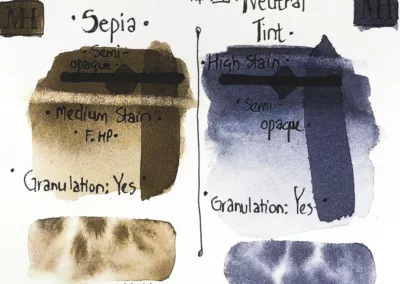 MH
·Sepia·
·Semi-
opaque:·
·Medium Stain·
·F, HP·
·Granulation: Yes·
Neutral
Tint·
MH
·High Stain:·
·Semi
opaque·
·Granulation: Yes·